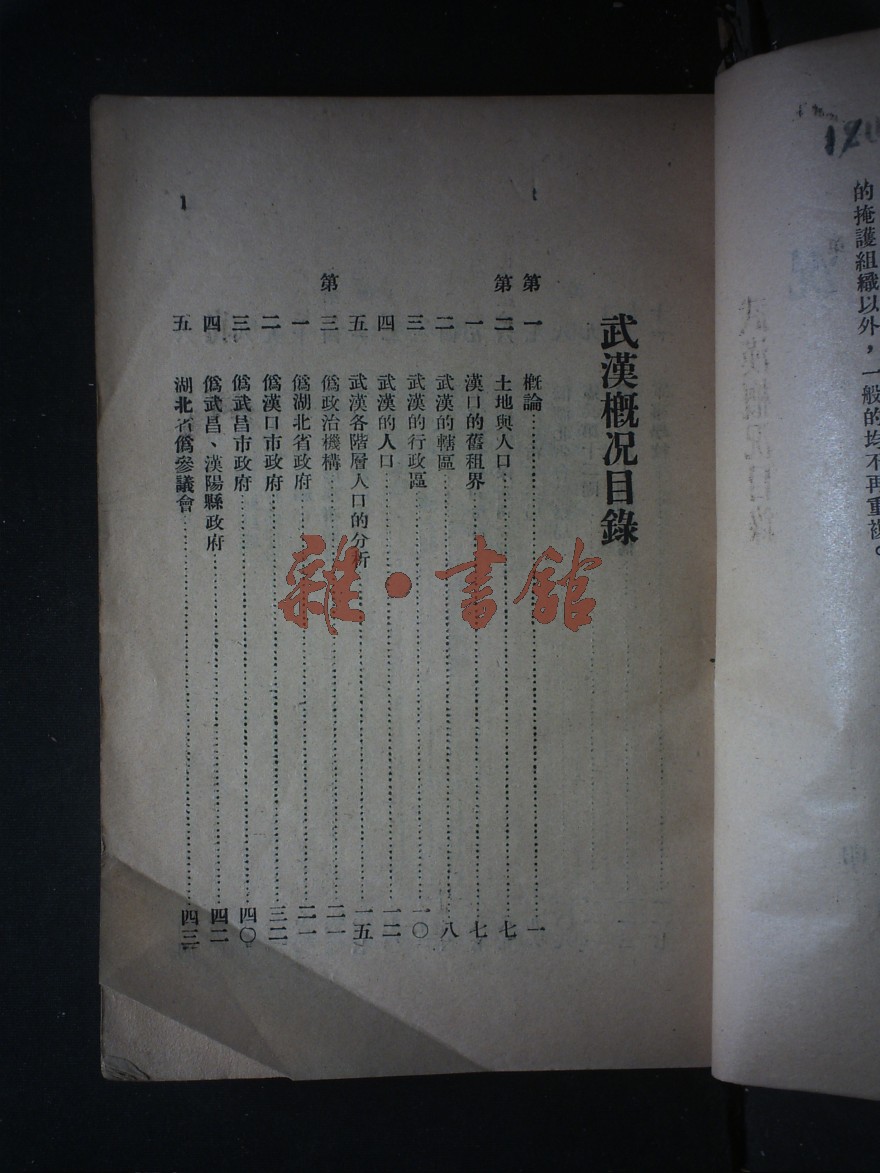 的掩護組織以外，一般的均不再重複。
武漢概況目錄
第一 概論……一
第二 土地與人口……七
一 漢口的舊租界……七
二 武漢的轄區……八
三 武漢的行政區……一〇
四 武漢的人口……一二
五 武漢各階層人口的分析……一五
第三 僞政治機構……二一
一 僞湖北省政府……二一
二 僞漢口市政府……三二
三 僞武昌市政府……四〇
四 僞武昌、漢陽縣政府……四二
五 湖北省僞參議會……四三
1
雜·書館